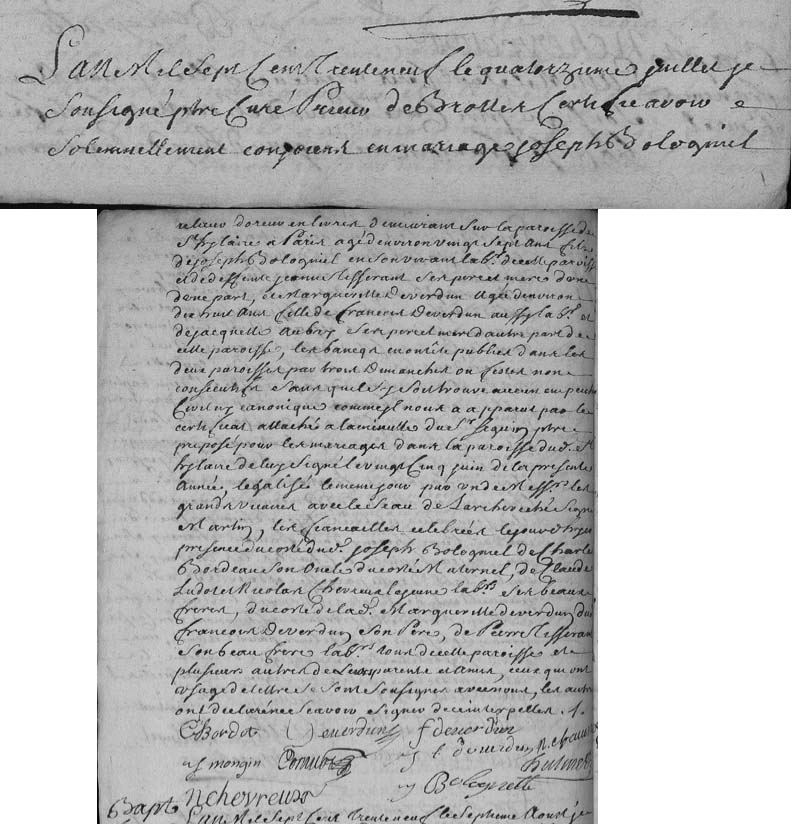 L'an Mil Sept Cent Trente neuf le quatorzieme juillet je
Soussigné ptre Curé Prieur de Brottes Certifie avoir
Solemnellement conjoint en mariage joseph Bologniel
relieur doreur en livres demeurant Sur la paroisse de
St hylaire a Paris agé denviron vingt Sept ans fils
de joseph Bologniel en Son vivant lab.r de cette paroisse
et de deffunte jeanne Tisserant Ses pere et mere d'une
d'une part, et Marguerite Deverdun agée denviron
dix huit ans fille de francois Deverdun aussy lab.r et
de jacquette Aubry Ses pere et mere d'autre part de
cette paroisse, les bancqs ont été publiés dans les
deux paroisses par trois Dimanches ou festes non
consecutifs Sans quil Sy Soit trouvé aucun empech
Civil ny canonique comme jl nous a apparut par le
certificat attaché a la minutte du Sr Seguin ptre
preposé pour les mariages dans la paroisse dud. St
hylaire de luy Signé le vingt Cinq juin de la presente
Année, legalisé le meme jour par un de Mess.rs les
grands vicaires avec le Seau de Larcheveché Signé
Martin, les fiancailles celebrées le jour d'hyer
presence du coté dud. joseph Bologniel de Charle
Bordeau Son Oncle du coté Maternel, de Claude
Ludot et Nicolas Chevreux le jeune lab.rs Ses beaux
freres, du coté de lad. Marguerite deverdun du
francois Deverdun Son Pere, de Pierre Tisserant
Son beau frere lab.rs tous de cette paroisse et
plusieurs autres de Leurs parents et amis, ceux qui ont
usage de lettre Se Sont Soussignés avec nous, les autres
ont declaré ne Scavoir Signer de ce interpellés ./.
C Bordot Deverdun f deverdun
mongin Cornu d deverdun
Bolognielle
N chevreux
Bapt
L'an Mil Sept Cent Trente neuf le Septieme Aoust je